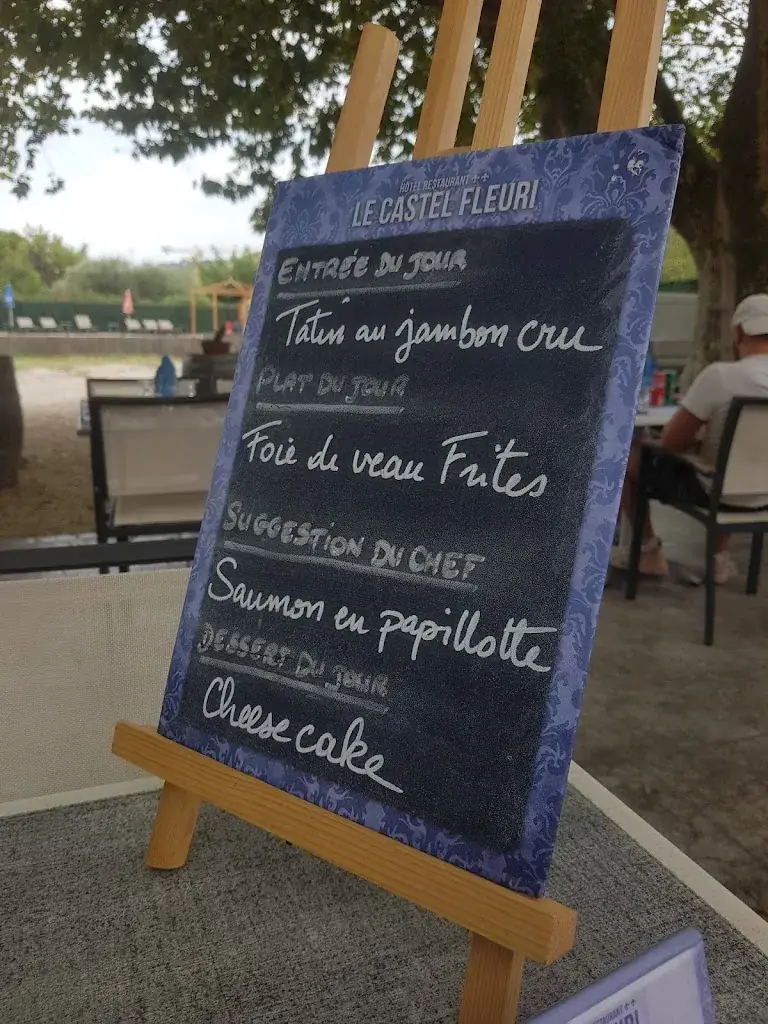 HOTEL RESTAURANT
LE CASTEL FLEURI
ENTRÉE DU JOUR
Tatin au jambon cru
PLAT DU JOUR
Foie de veau Frites
SUGGESTION DU CHEF
Saumon en papillotte
DESSERT DU JOUR
Cheese cake